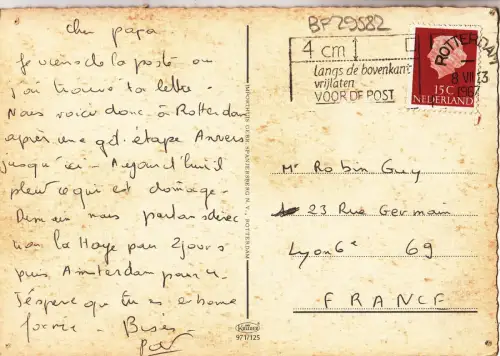 Cher papa
Je viens de la poste où
j'ai trouvé ta lettre.
Nous voici donc à Rotterdam
après une gde étape Anvers
jusqu'ici. Aujourd'hui il
pleut ce qui est domage.
Demain nous partons direc
tion la Haye pour 2 jours
puis Amsterdam pour 4.
J'espère que tu es en bonne
forme. Bises.
BF29582
4 cm
langs de bovenkant
vrijlaten
VOOR DE POST
ROTTERDAM
8 VII 13
1967
15C
NEDERLAND
Mr Robin Guy
23 Rue Germain
Lyon 6e 69
FRANCE
ROTTERDAM
971/125